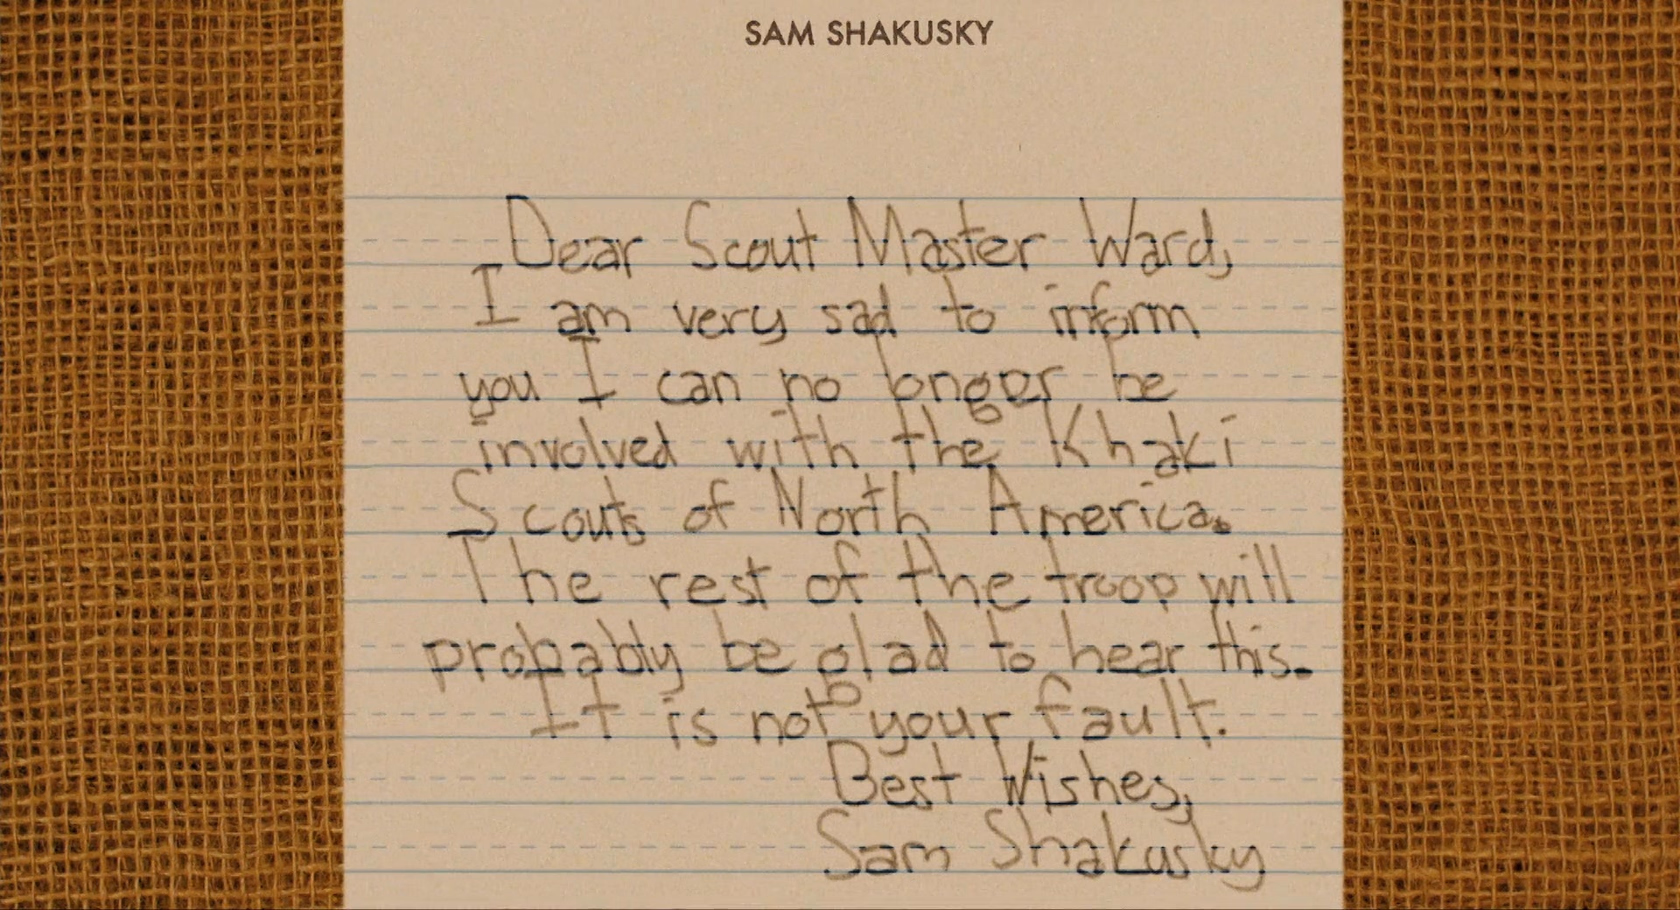 SAM SHAKUSKY
Dear Scout Master Ward,
I am very sad to inform
you I can no longer be
involved with the Khaki
Scouts of North America.
The rest of the troop will
probably be glad to hear this.
It is not your fault.
Best Wishes,
Sam Shakusky